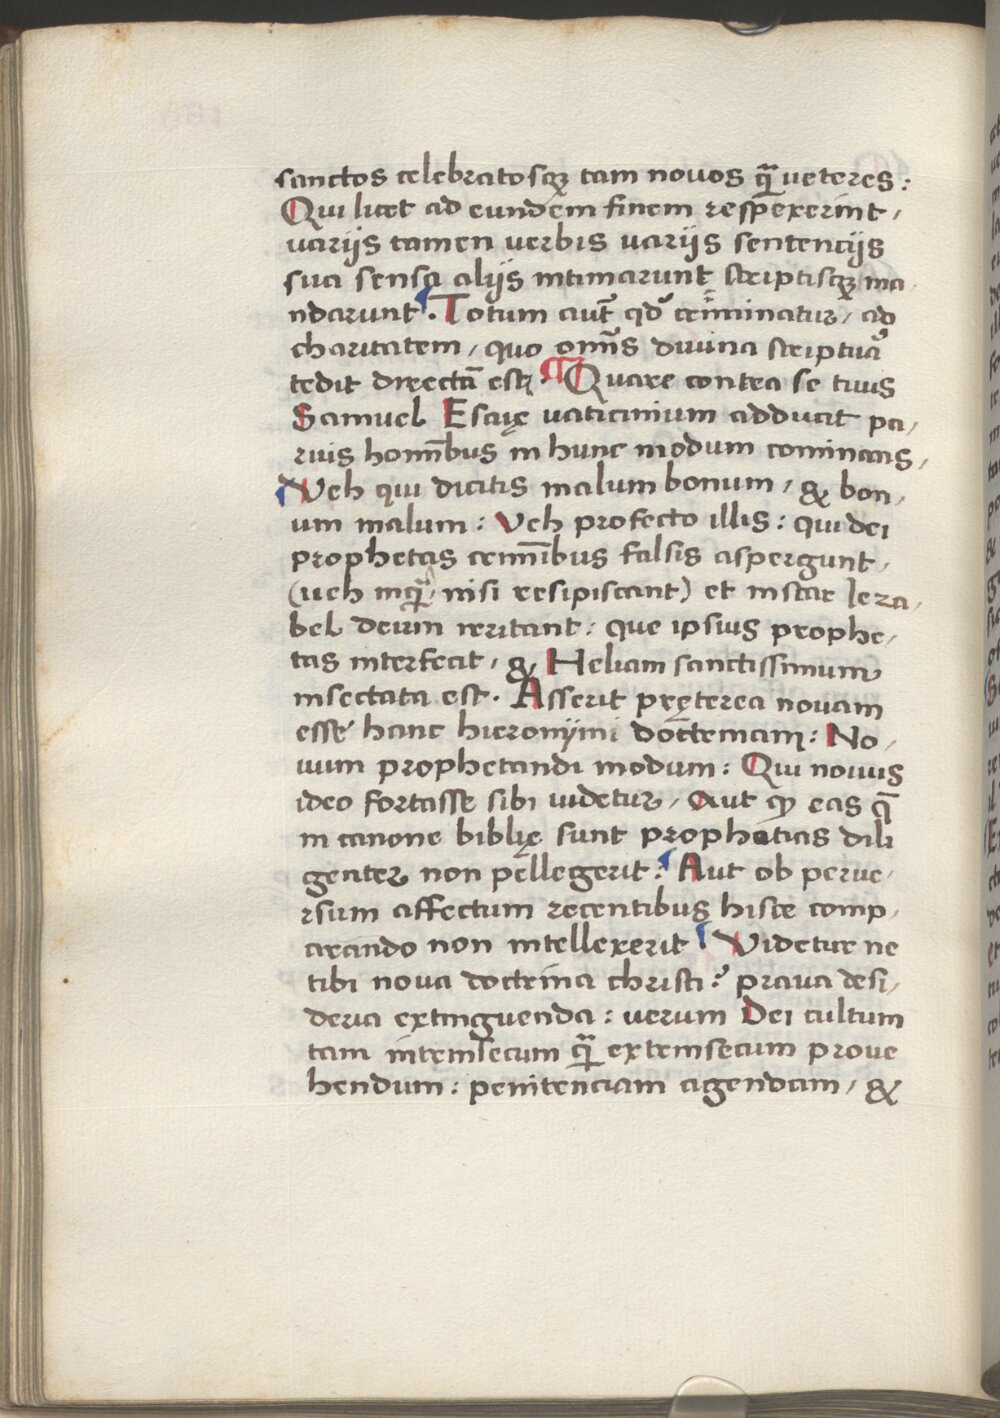 sanctos celebratosqꝫ tam novos qua̅ veteres:
Qui licet ad eundem finem respexerint,
variis tamen verbis variis sentenciis
sua sensa aliis intimarunt scriptisqꝫ ma,
ndarunt. Totum aut̅ qd' cer̅minatur, ad
charitatem, quo om̅s divina scriptura
tedit directa̅ est: Quare contra se tuus
Samuel Esaię vaticinium adducit pa,
ruis hom̅ibus in hunc modum cominans,
Veh qui dicitis malum bonum, & bon,
um malum: Veh profecto illis: qui dei
prophetas crim̅ibus falsis aspergunt,
(veh inqua̅, nisi resipiscant) et instar Ieza,
bel deum irritant: que ipsius prophe,
tas interfecit, & Heliam sanctissimum
insectata est. Asserit pręterea novam
esse hanc hieronymi doctrinam: No,
vum prophetandi modum: Qui novus
ideo fortasse sibi videtur, Aut qꝫ eas q̅
in canone biblię sunt prophetias dili
genter non pellegerit: Aut ob perve,
rsum affectum recentibus hisce comp,
arando non intellexerit Videtur ne
tibi nova doctrina christi? prava desi,
deria extinguenda: verum Dei cultum
tam intrinsecum qua̅ extrinsecum prove
hendum: penitenciam agendam, &